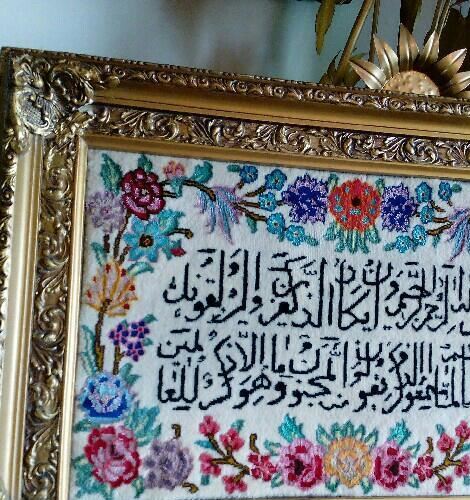 الرحمن الرحيم وان يكاد الذين كفروا ليزلقونك
لما سمعوا الذكر ويقولون انه لمجنون وما هو الا ذكر للعالمين